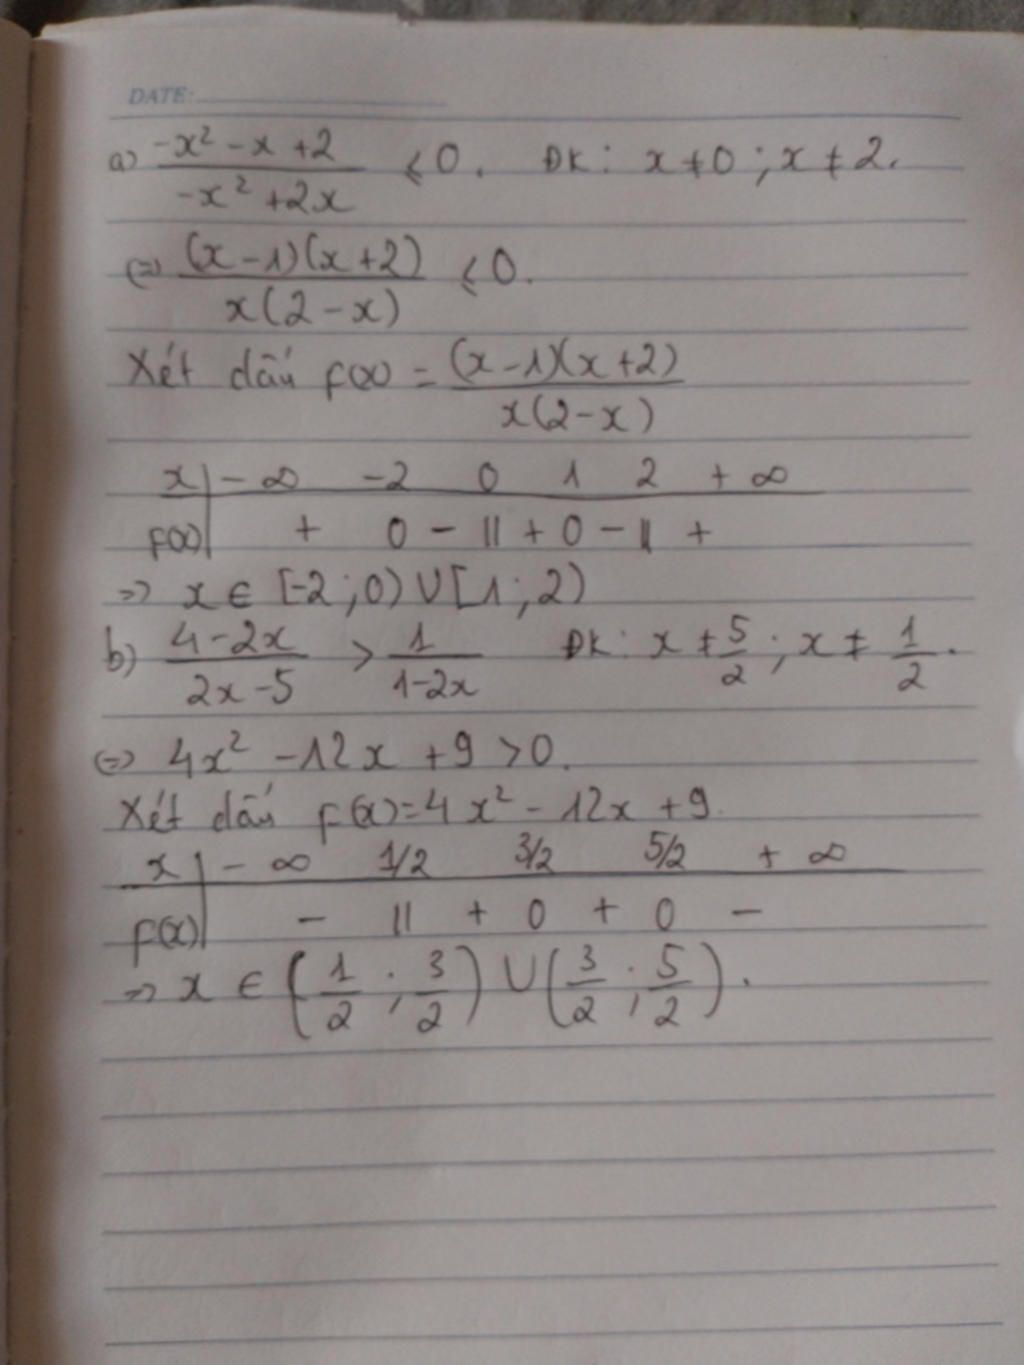 DATE:
a) (-x² - x + 2)/(-x² + 2x) ≤ 0. ĐK: x ≠ 0 ; x ≠ 2.
(=) ((x - 1)(x + 2))/(x(2 - x)) ≤ 0.
Xét dấu f(x) = ((x - 1)(x + 2))/(x(2 - x))
x | - ∞ -2 0 1 2 + ∞
f(x) | + 0 - || + 0 - || +
=> x ∈ [-2 ; 0) ∪ [1 ; 2)
b) (4 - 2x)/(2x - 5) > 1/(1 - 2x) ĐK: x ≠ 5/2 ; x ≠ 1/2.
(=) 4x² - 12x + 9 > 0.
Xét dấu f(x) = 4x² - 12x + 9.
x | - ∞ 1/2 3/2 5/2 + ∞
f(x) | - || + 0 + 0 -
=> x ∈ (1/2 ; 3/2) ∪ (3/2 ; 5/2).